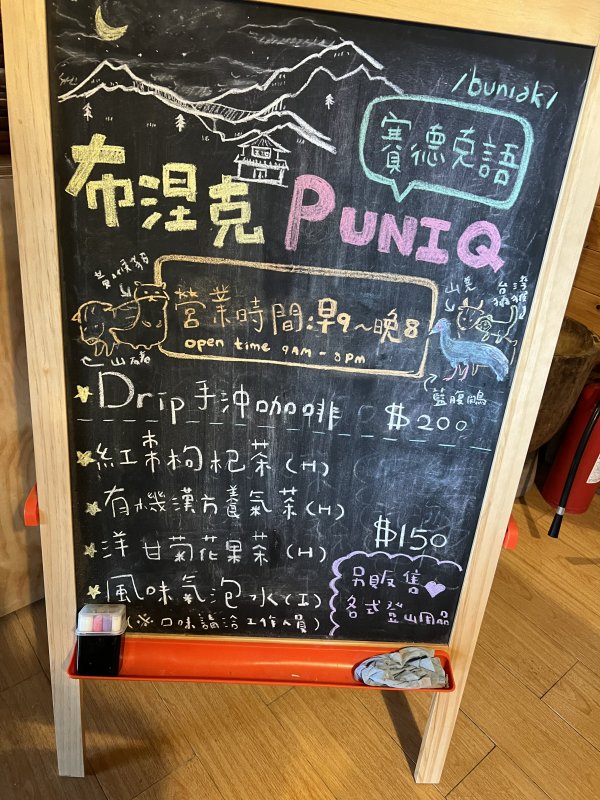 /buniak/
賽德克語
布涅克 PUNIQ
黃喉貂
山羌
營業時間:早9~晚8
open time 9AM - 8pm
山羌
台灣獼猴
藍腹鷴
Drip手沖咖啡 $200
紅棗枸杞茶(H)
有機漢方養氣茶(H)
洋甘菊花果茶(H)
$150
風味氣泡水(I)
(※口味請洽工作人員)
另販售
各式登山用品